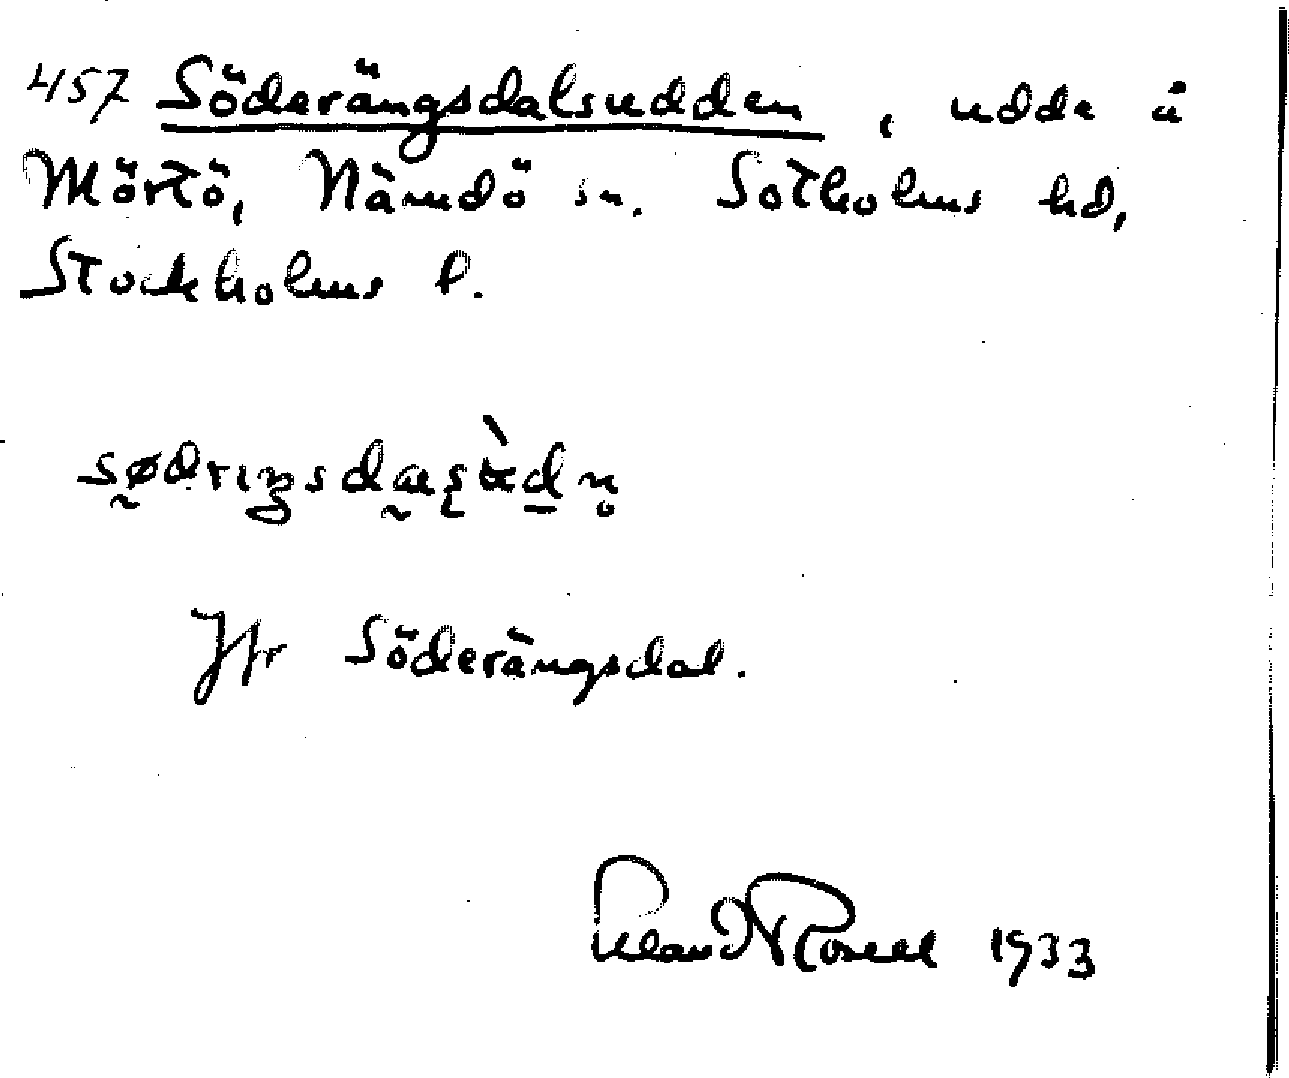 457 Söderängsdalsudden, udde å
Mörtö, Nämdö sn. Sotholms hd,
Stockholms l.
Jfr Söderängsdal.
1933